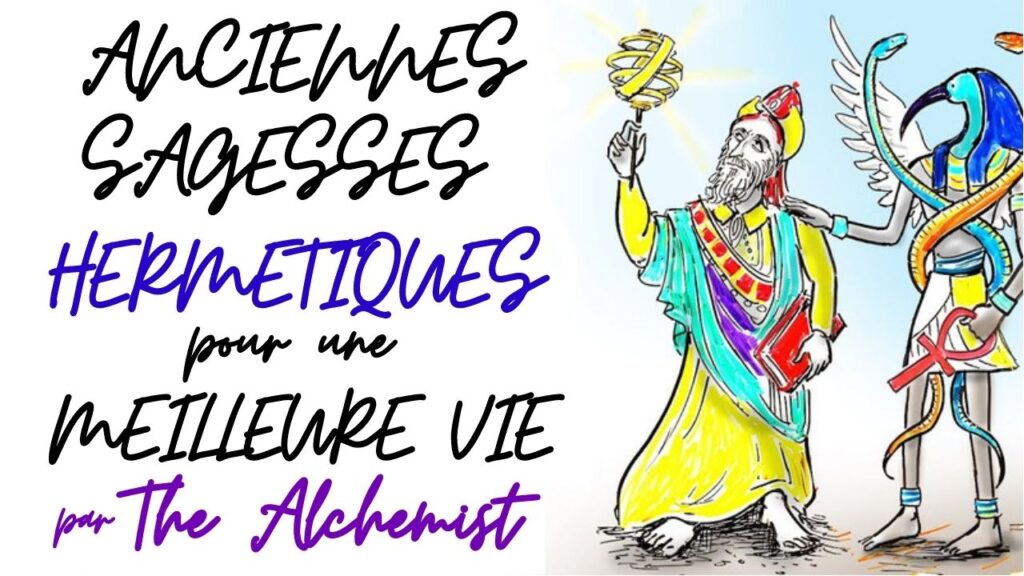 ANCIENNES
SAGESSES
HERMETIQUES
pour une
MEILLEURE VIE
par The Alchemist